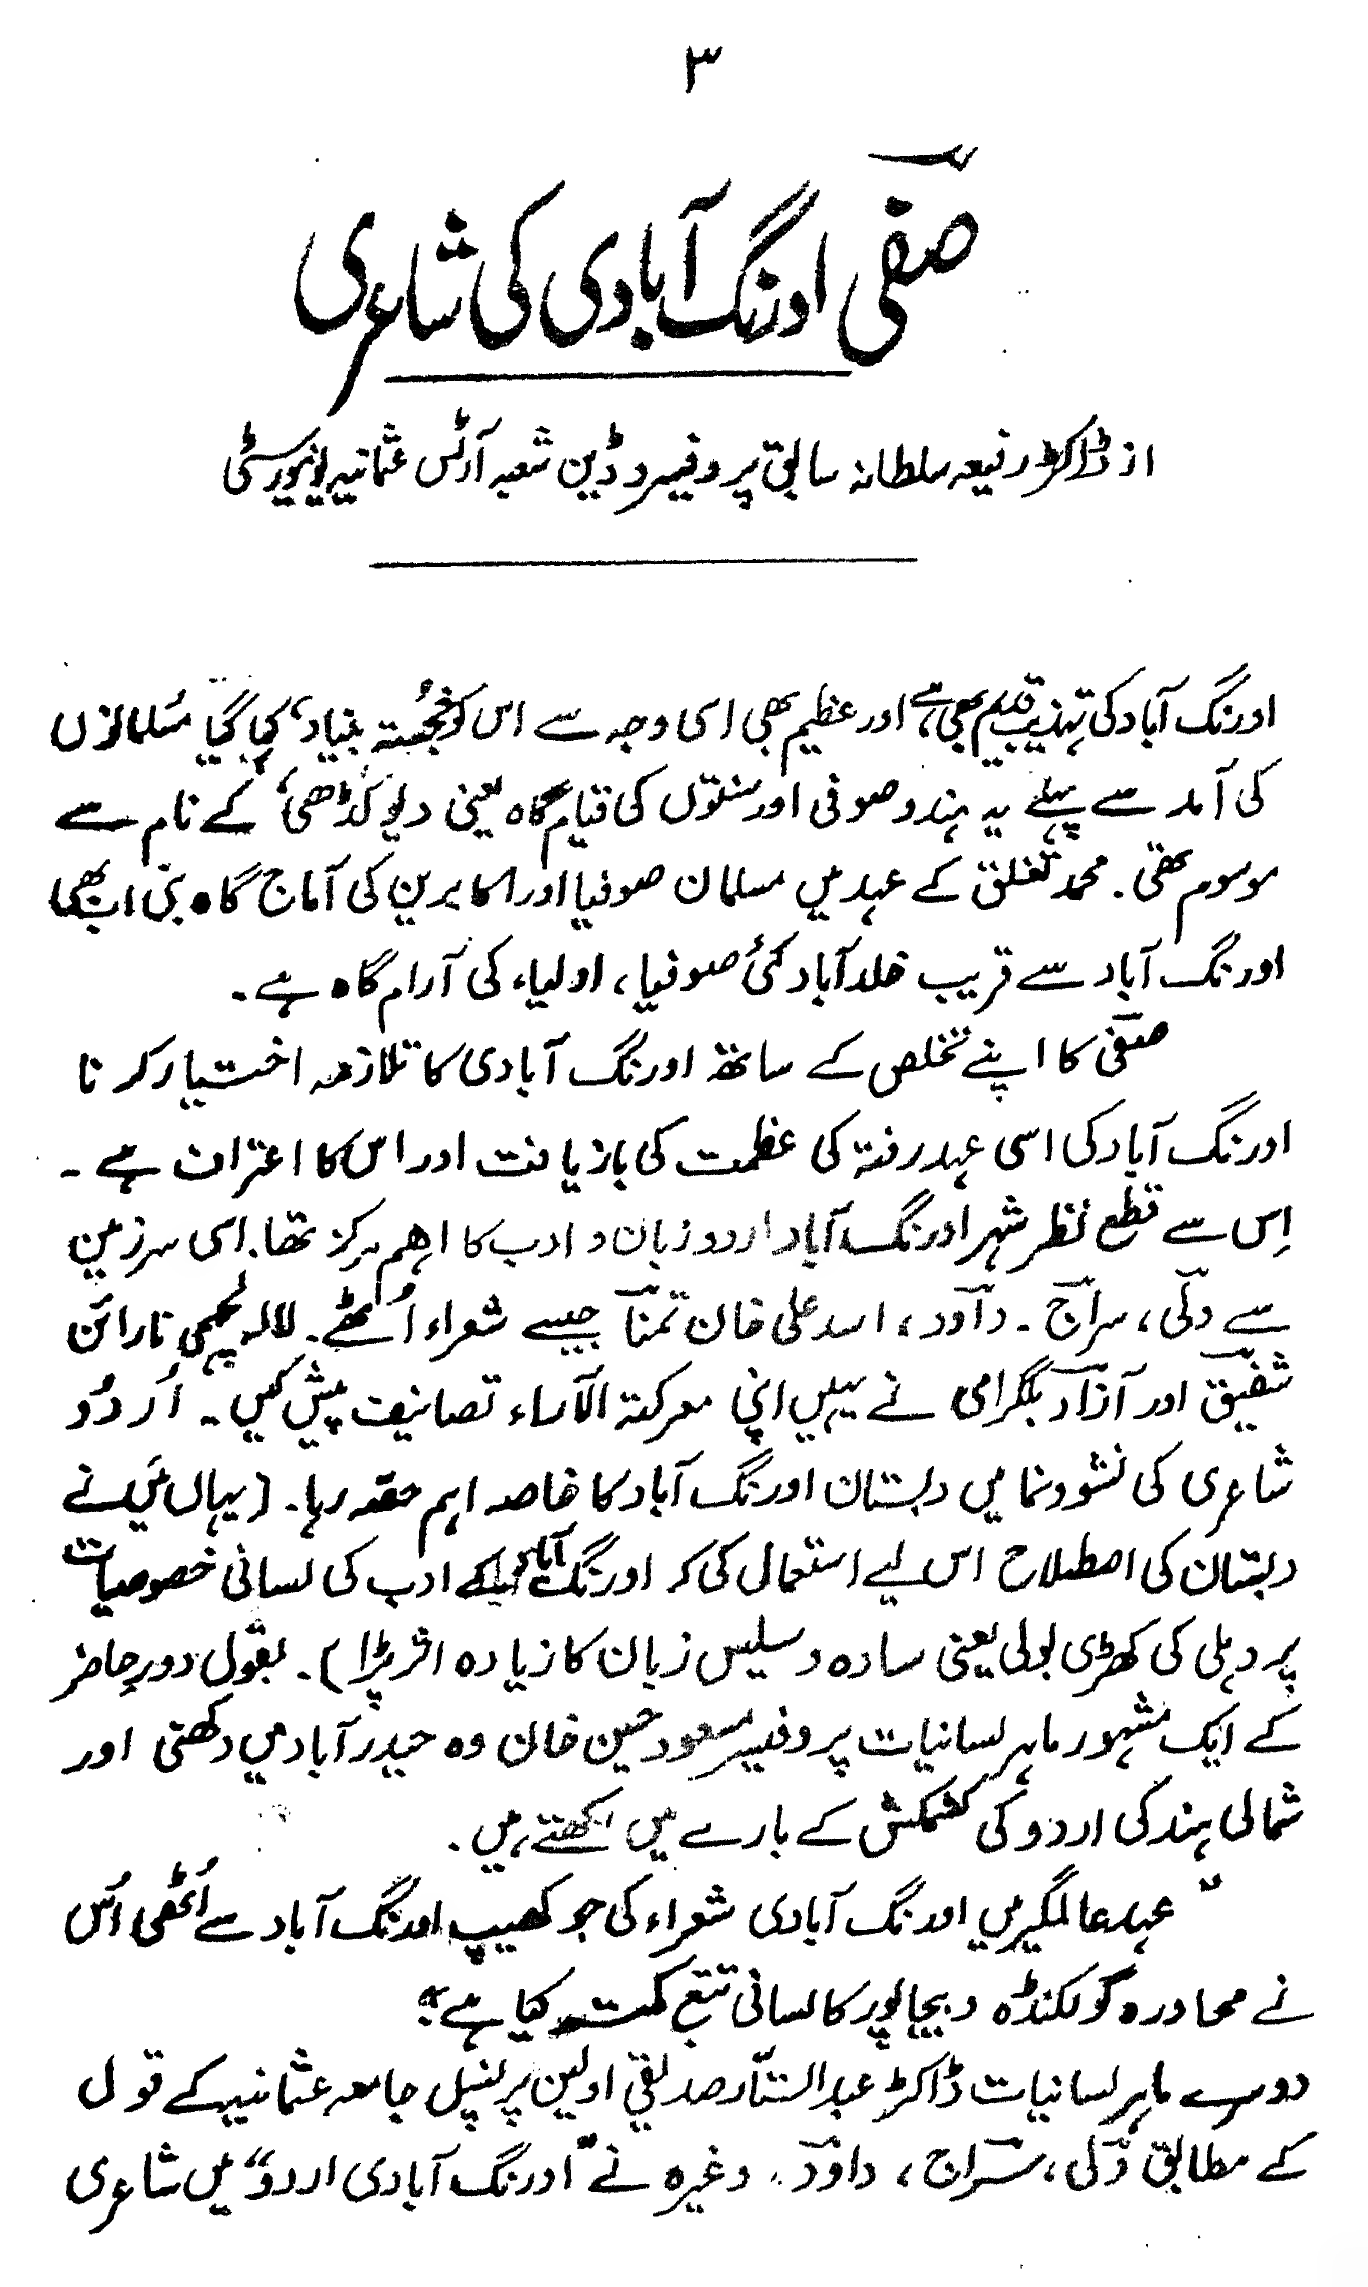 ۳
صفیؔ اورنگ آبادی کی شاعری
از ڈاکٹر رفیعہ سلطانہ سابق پروفیسر و ڈین شعبہ آرٹس عثمانیہ یونیورسٹی
اورنگ آباد کی تہذیب قدیم بھی ہے اور عظیم بھی اسی وجہ سے اس کو ’خجستہ بنیاد‘ کہا گیا مسلمانوں
کی آمد سے پہلے یہ ہندو صوفی اور سنتوں کی قیام گاہ یعنی دیو گڈھی‘ کے نام سے
موسوم تھی۔ محمد تغلق کے عہد میں مسلمان صوفیا اور اکابرین کی آماج گاہ بنی اب بھی
اورنگ آباد سے قریب خلدآباد کئی صوفیا، اولیاء کی آرام گاہ ہے۔
صفیؔ کا اپنے تخلص کے ساتھ اورنگ آبادی کا تلازمہ اختیار کرنا
اورنگ آباد کی اسی عہد رفتہ کی عظمت کی بازیافت اور اس کا اعتراف ہے۔
اِس سے قطع نظر شہر اورنگ آباد اردو زبان و ادب کا اہم مرکز تھا۔ اسی سرزمین
سے ولیؔ، سراجؔ۔ داؤدؔ، اسد علی خان تمناؔ جیسے شعراء اُٹھے۔ لالہ لچھمی نارائن
شفیقؔ اور آزادؔ بلگرامی نے یہیں اپنی معرکتہ الآراء تصانیف پیش کیں۔ اُردُو
شاعری کی نشوونما میں دبستان اورنگ آباد کا خاصہ اہم حصّہ رہا۔ (یہاں میَں نے
دبستان کی اصطلاح اس لیے استعمال کی کہ اورنگ آباد کے ادب کی لسانی خصوصیات
پر دہلی کی کھڑی بولی یعنی سادہ و سلیس زبان کا زیادہ اثر پڑا)۔ بقول دورِ حاضر
کے ایک مشہور ماہر لسانیات پروفیسر مسعود حسین خان وہ حیدرآباد میں دکھنی اور
شمالی ہند کی اردو کی کشمکش کے بارے میں لکھتے ہیں۔
”عہد عالمگیر میں اورنگ آبادی شعراء کی جو کھیپ اورنگ آباد سے اُٹھی اُس
نے محاورہ گولکنڈہ و بیجاپور کا لسانی تتبع کمتر کیا ہے“
دوسرے ماہر لسانیات ڈاکٹر عبدالستّار صدیقی اولین پرنسپل جامعہ عثمانیہ کے قول
کے مطابق ولیؔ، سراجؔ، داؤدؔ۔ وغیرہ نے ”اورنگ آبادی اردو“ میں شاعری